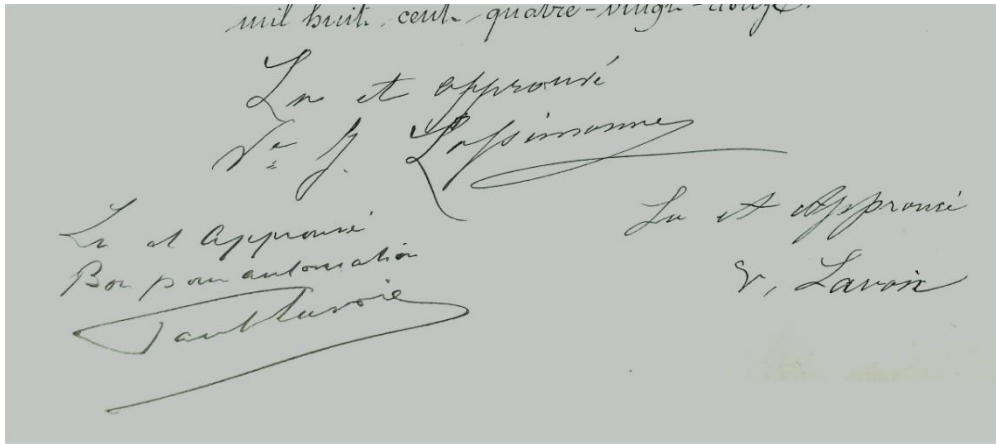 mil huit cent quatre-vingt-douze.
Lu et approuvé
Ve J. Lassimonne
Lu et Approuvé
Bon pour autorisation
Paul Lavoix
Lu et Approuvé
V. Lavoix